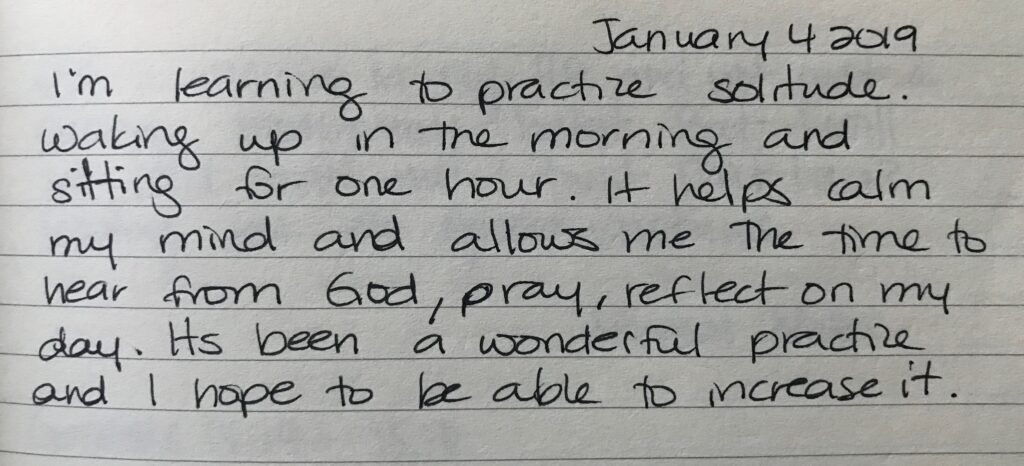 January 4 2019
I'm learning to practize solitude.
Waking up in the morning and
sitting for one hour. It helps calm
my mind and allows me the time to
hear from God, pray, reflect on my
day. Its been a wonderful practize
and I hope to be able to increase it.